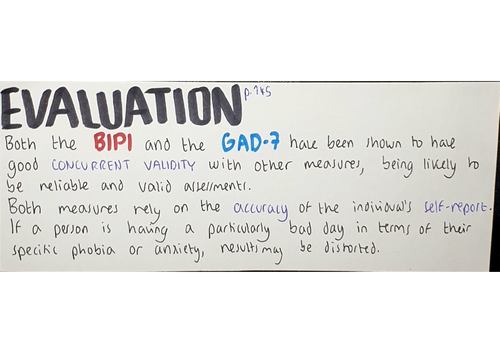 EVALUATION p.245
Both the BIPI and the GAD-7 have been shown to have
good CONCURRENT VALIDITY with other measures, being likely to
be reliable and valid assessments.
Both measures rely on the accuracy of the individual's self-report.
If a person is having a particularly bad day in terms of their
specific phobia or anxiety, results may be distorted.